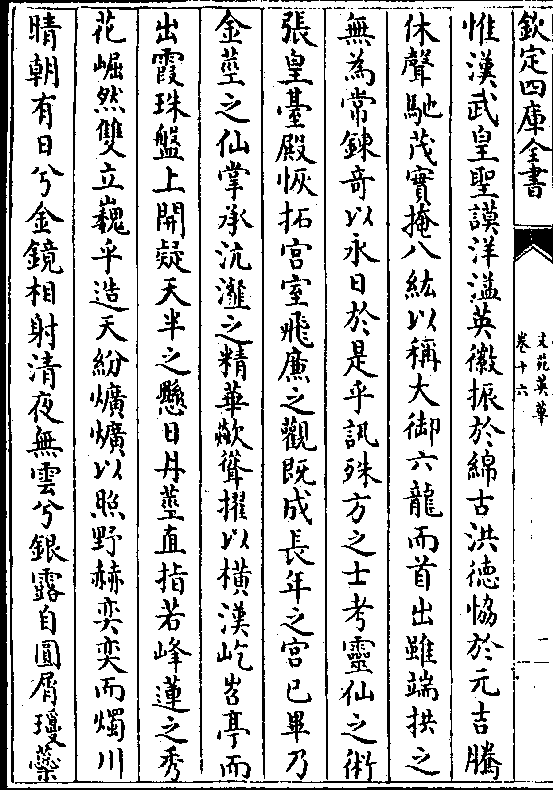 欽定四庫全書
文苑英華
卷十六
惟漢武皇聖謨洋溢英徽振於綿古洪德恊於元吉騰
休聲馳茂實掩八紘以稱大御六龍而首出雖端拱之
無為常鍊竒以永日於是乎訊殊方之士考靈仙之術
張皇臺殿恢拓宮室飛亷之觀既成長年之宮已畢乃
金莖之仙掌承沆瀣之精華歘聳擢以橫漢屹岧亭而
出霞珠盤上開疑天半之懸日丹莖直指若峰蓮之秀
花崛然雙立巍乎造天紛爌爌以照野赫奕奕而燭川
晴朝有日兮金鏡相射清夜無雲兮銀露自圓屑瓊蘂